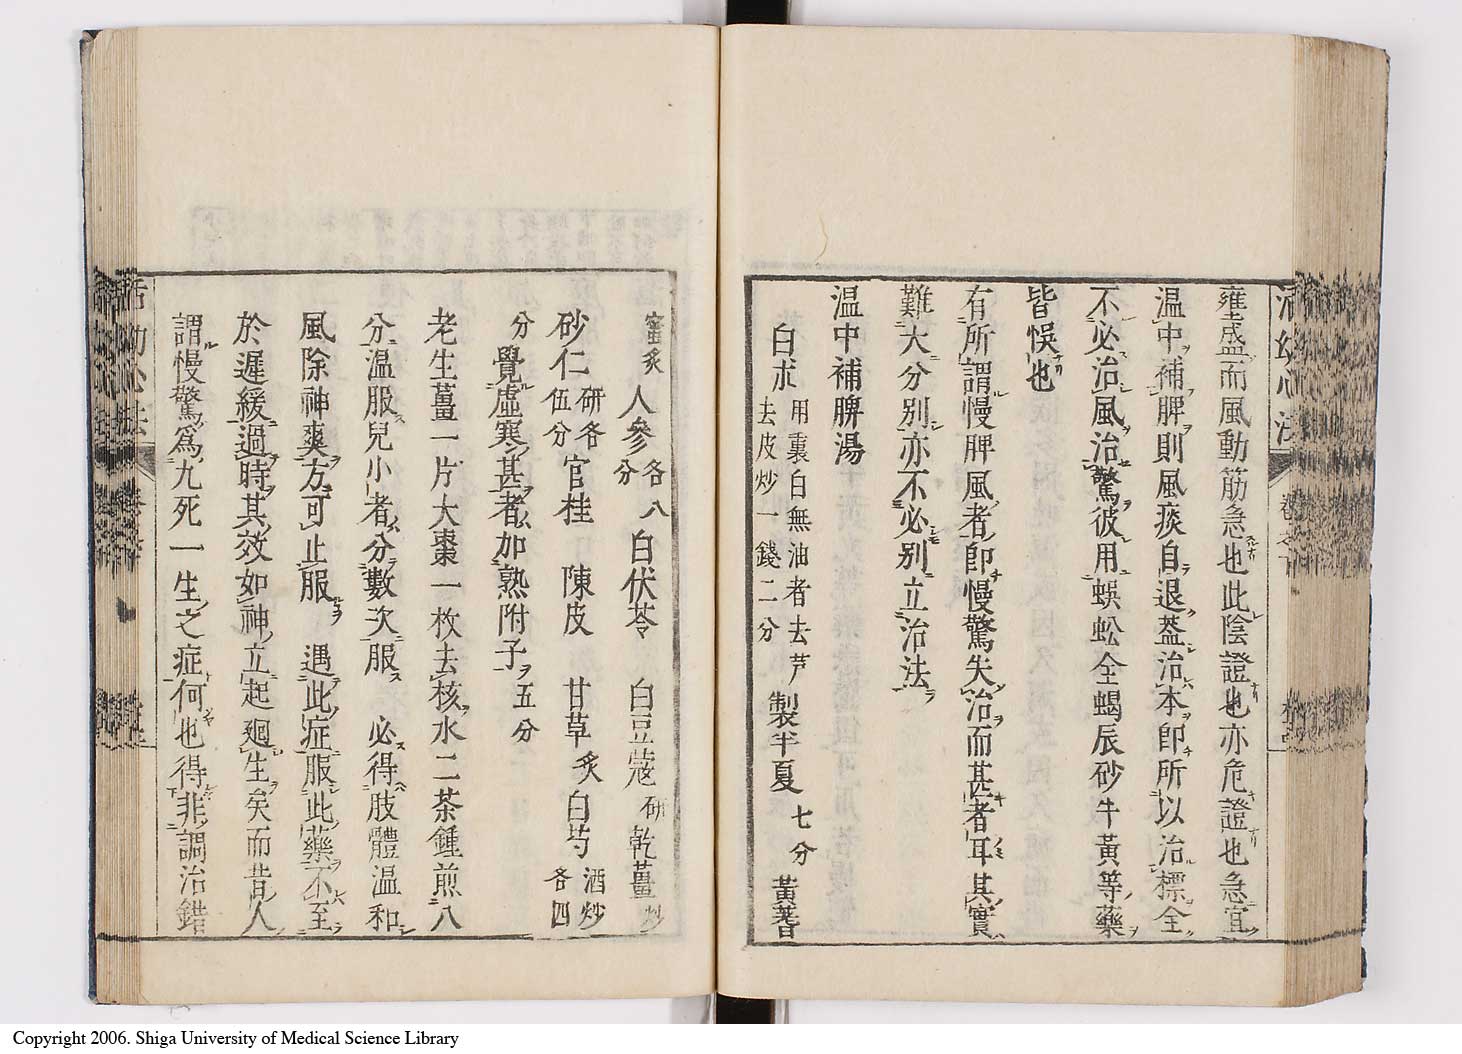 雍盛而風動筋急也此陰證也亦危證也急宜
温中補脾則風痰自退蓋治本即所以治標全
不必治風治驚彼用蜈蚣全蝎辰砂牛黃等藥
皆悞也
有所謂慢脾風者即慢驚失治而甚者耳其實
難大分別亦不必別立治法
温中補脾湯
白朮 用裏白無油者去芦
去皮炒一錢二分 製半夏 七分 黃蓍
蜜炙 人參 各八分 白伏苓 白豆蔻 研 乾薑 炒
砂仁 研各伍分 官桂 陳皮 甘草 炙 白芍 酒炒各四
分 覺虛寒甚者加熟附子五分
老生薑一片大棗一枚去核水二茶鍾煎八
分温服兒小者分數次服 必得肢體温和
風除神爽方可止服 遇此症服此藥不至
於遲緩過時其效如神立起廻生矣而昔人
謂慢驚爲九死一生之症何也得非調治錯